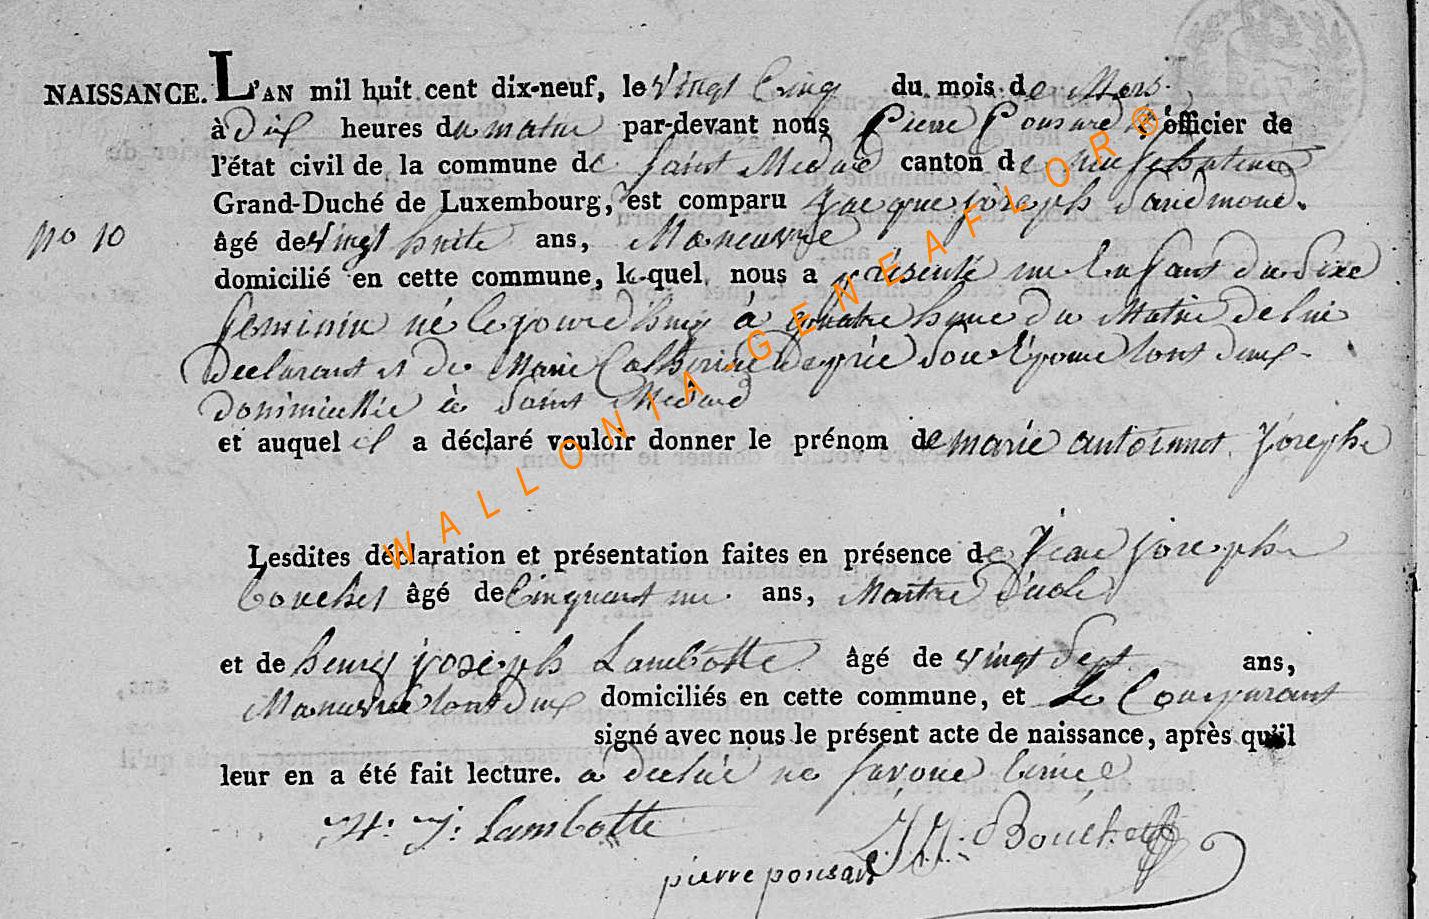 NAISSANCE. L'AN mil huit cent dix-neuf, le Vingt Cinq du mois de Mars
à dix heures du matin par-devant nous Pierre Ponsard l'officier de
l'état civil de la commune de Saint Medard canton de neufchateau
Grand-Duché de Luxembourg, est comparu Jacque joseph
no 10
âgé de Vingt huite ans, Maneuvre
domicilié en cette commune, lequel nous a présenté un Enfant du Sexe
feminin né le jourdhuy à quatre heure du Matin de lui
Declarant et de Marie Catherine son Epouse tout deux
à Saint Medard
et auquel il a déclaré vouloir donner le prénom de marie antoinnet Josephe
Lesdites déclaration et présentation faites en présence de Jean joseph
bouchet âgé de Cinquant un ans, Maitre D'ecole
et de henry joseph Lambotte âgé de vingt Sept ans,
Manuvre tout deux domiciliés en cette commune, et Le Comparant
signé avec nous le présent acte de naissance, après qu'il
leur en a été fait lecture. a declaré ne savoir
H. J. Lambotte
J. J. Bouchet
pierre ponsard
WALLONIA-GENEAFLOR®